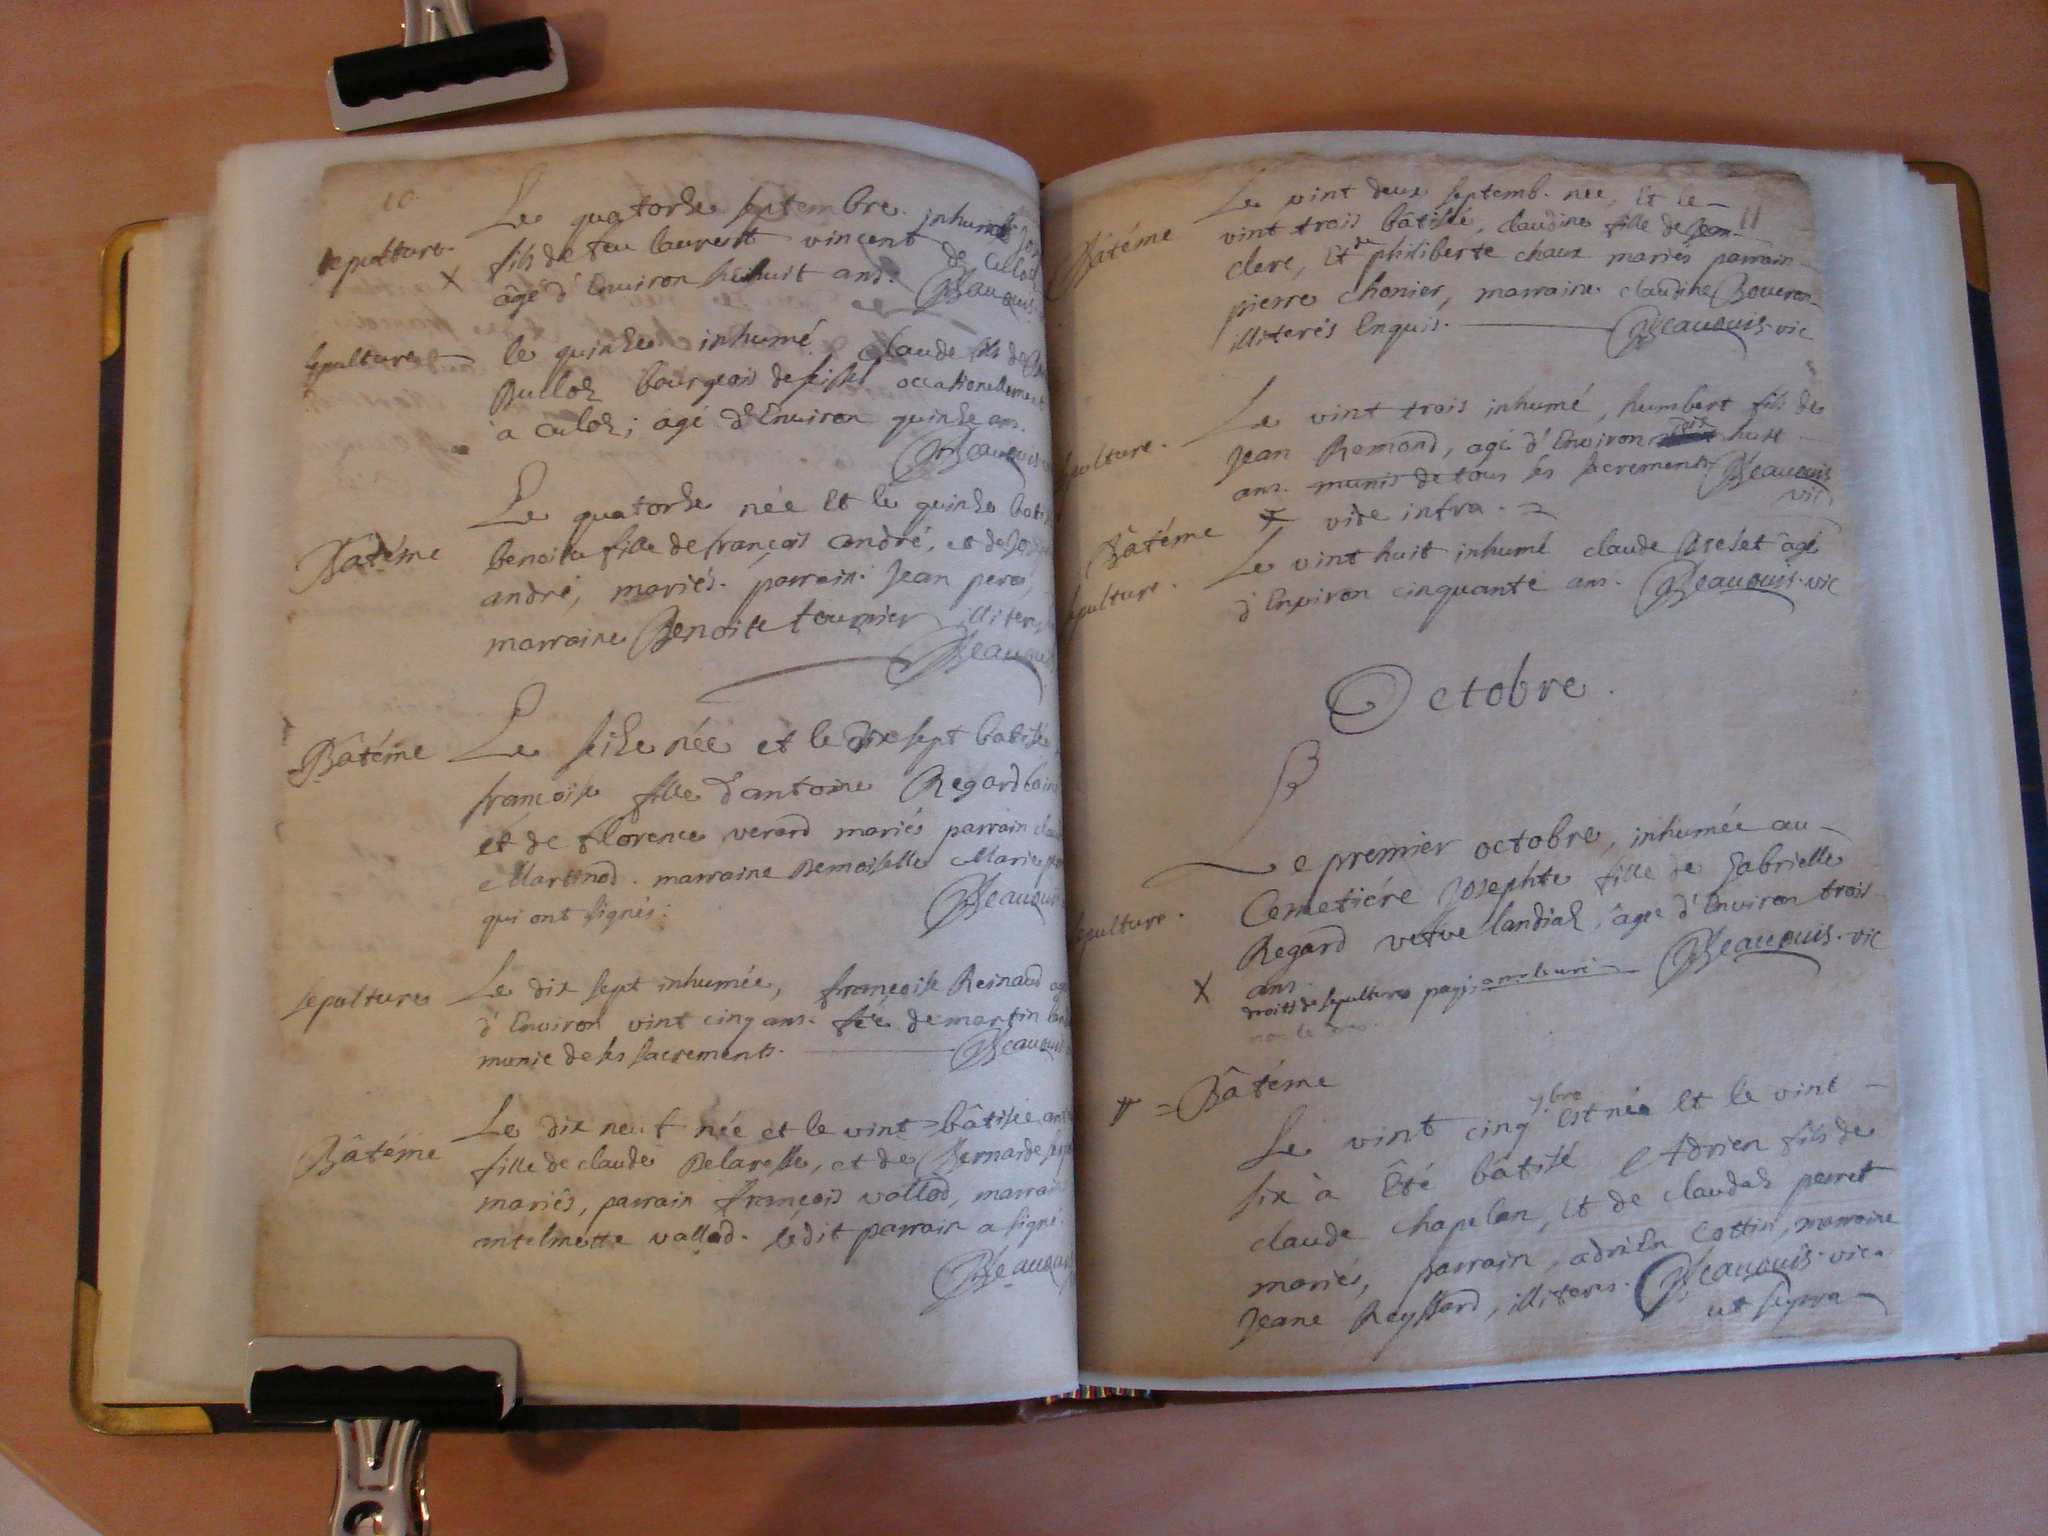 10.
sepulture.
Le quatorze septembre. inhumé
fils de feu laurent vincent de culoz
âgé d'Environ huit ans. Beauquis
Sepulture
le quinze inhumé Claude fils de
Bulloz bourgeois de seissel occasionellement
a culoz; agé d'Environ quinze ans.
Beauquis
Bâtéme
Le quatorze née Et le quinze
benoite fille de françois andré, et de
andré, mariés. parrain. Jean pero,
marraine Benoite tournier
Beauquis
Bâtéme
Le seize née et le dixsept batisé
françoise fille d'antoine Regard
et de florence verard mariés parrain
Martinod. marraine Demoiselle Marie
qui ont signés.
Beauquis
sepulture
Le dix sept inhumée, françoise Reinaud
d'Environ vint cinq ans. de martin
munie de ses sacrements.
Beauquis
Bâtéme
Le dix neuf née et le vint = bâtisée
fille de claude Delaresse, et de Bernarde
mariés, parrain françois vallod, marraine
antelmette vallod. ledit parrain a signé.
Beauquis
11
Bâtéme
Le vint deux septemb. née, Et le
vint trois bâtisée, claudine fille de Jean
clerc, Et de philiberte chaux mariés parrain
pierre chonier, marraine claudine Boveron
illiterés Enquis. Beauquis. vic
sepulture.
Le vint trois inhumé, humbert fils de
Jean Remond, agé d'Environ huit
ans. munis de tous ses sacrements Beauquis
vic
Bâtéme
vide infra.
sepulture.
Le vint huit inhumé claude âgé
d'Environ cinquante ans. Beauquis. vic
Octobre.
sepulture.
Le premier octobre, inhumée au
Cemetiére Josephte fille de Gabrielle
Regard veuve landiaz, âgee d'Environ trois
ans. Beauquis. vic
X
droits de sepulture
= Bâtéme
Le vint cinq 7.bre Est née Et le vint
six à Eté bâtisé Adrien fils de
claude Chapelan, Et de claudaz perret
mariés, parrain, adrien Cottin, marraine
Jeane Reyssard, illiterés. Beauquis. vic.
ut supra